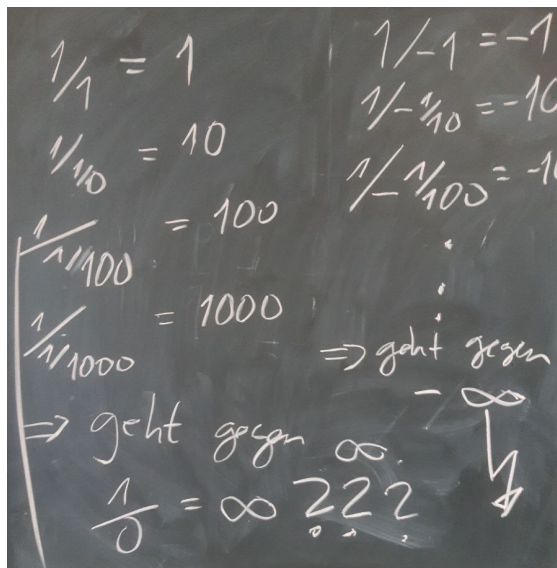 1/1 = 1
1/1/10 = 10
1/1/100 = 100
1/1/1000 = 1000
⇒ geht gegen ∞.
1/0 = ∞ ???
1/-1 = -1
1/-1/10 = -10
1/-1/100 = -1
⋮
⇒ geht gegen
- ∞